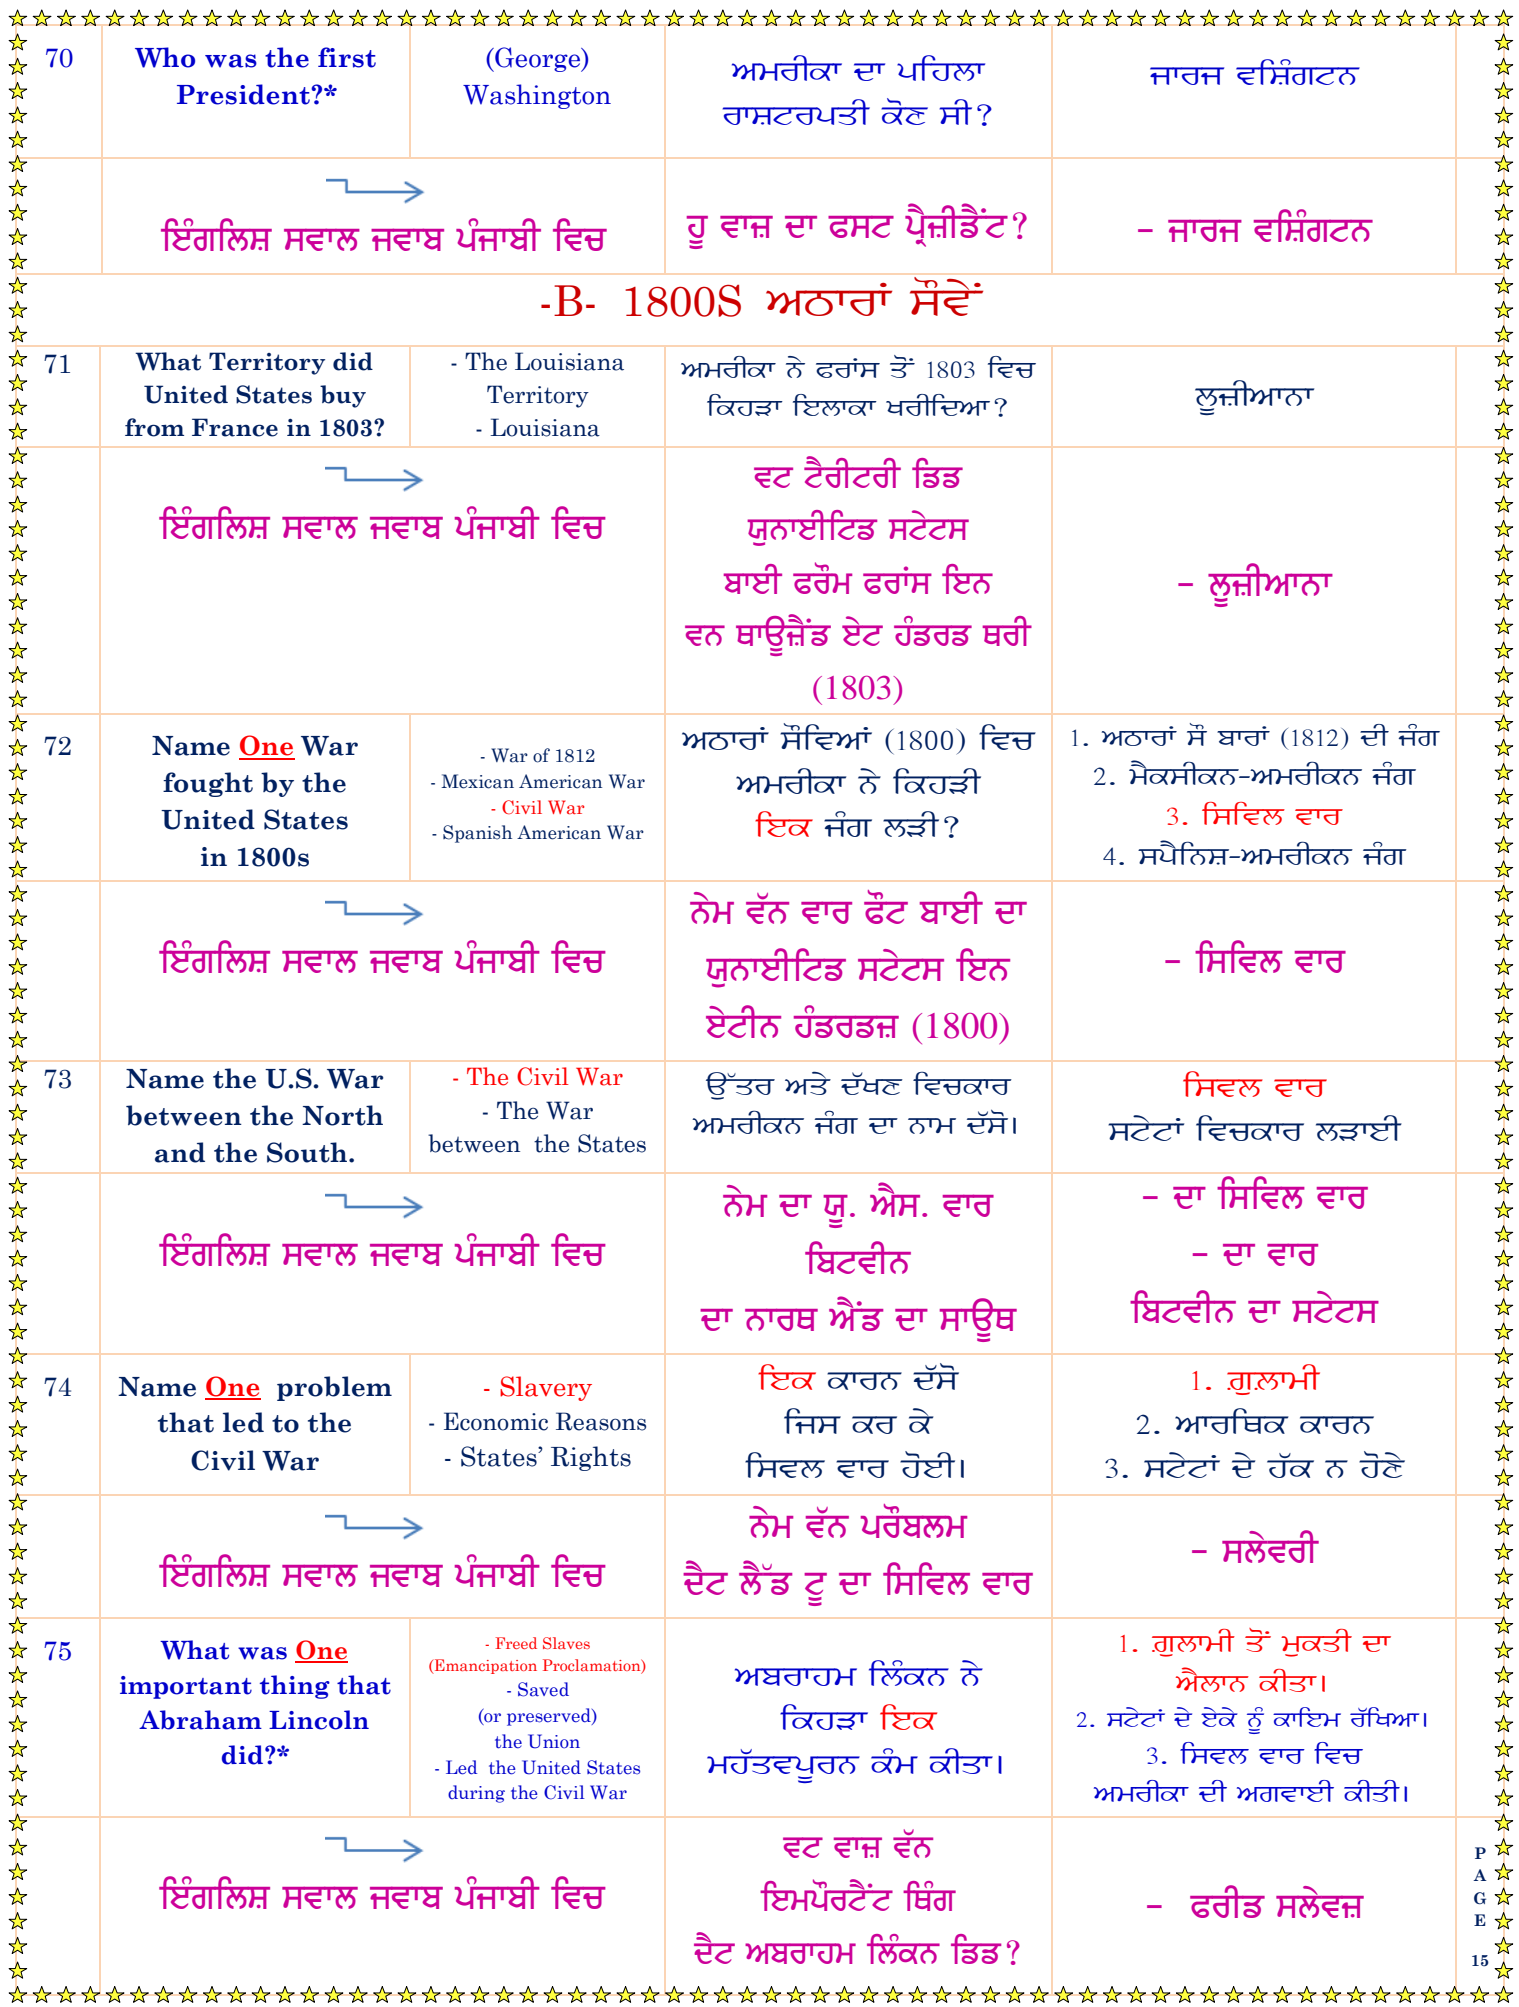 70
Who was the first
President?*
(George)
Washington
ਅਮਰੀਕਾ ਦਾ ਪਹਿਲਾ
ਰਾਸ਼ਟਰਪਤੀ ਕੋਣ ਸੀ?
ਜਾਰਜ ਵਸ਼ਿੰਗਟਨ
ਇੰਗਲਿਸ਼ ਸਵਾਲ ਜਵਾਬ ਪੰਜਾਬੀ ਵਿਚ
ਹੂ ਵਾਜ਼ ਦਾ ਫਸਟ ਪ੍ਰੈਜ਼ੀਡੈਂਟ?
– ਜਾਰਜ ਵਸ਼ਿੰਗਟਨ
-B- 1800S ਅਠਾਰਾਂ ਸੌਵੇਂ
71
What Territory did
United States buy
from France in 1803?
- The Louisiana
Territory
- Louisiana
ਅਮਰੀਕਾ ਨੇ ਫਰਾਂਸ ਤੋਂ 1803 ਵਿਚ
ਕਿਹੜਾ ਇਲਾਕਾ ਖਰੀਦਿਆ?
ਲੂਜ਼ੀਆਨਾ
ਇੰਗਲਿਸ਼ ਸਵਾਲ ਜਵਾਬ ਪੰਜਾਬੀ ਵਿਚ
ਵਟ ਟੈਰੀਟਰੀ ਡਿਡ
ਯੁਨਾਈਟਿਡ ਸਟੇਟਸ
ਬਾਈ ਫਰੌਮ ਫਰਾਂਸ ਇਨ
ਵਨ ਥਾਊਜ਼ੈਂਡ ਏਟ ਹੰਡਰਡ ਥਰੀ
(1803)
– ਲੂਜ਼ੀਆਨਾ
72
Name One War
fought by the
United States
in 1800s
- War of 1812
- Mexican American War
- Civil War
- Spanish American War
ਅਠਾਰਾਂ ਸੌਵਿਆਂ (1800) ਵਿਚ
ਅਮਰੀਕਾ ਨੇ ਕਿਹੜੀ
ਇਕ ਜੰਗ ਲੜੀ?
1. ਅਠਾਰਾਂ ਸੌ ਬਾਰਾਂ (1812) ਦੀ ਜੰਗ
2. ਮੈਕਸੀਕਨ-ਅਮਰੀਕਨ ਜੰਗ
3. ਸਿਵਿਲ ਵਾਰ
4. ਸਪੈਨਿਸ਼-ਅਮਰੀਕਨ ਜੰਗ
ਇੰਗਲਿਸ਼ ਸਵਾਲ ਜਵਾਬ ਪੰਜਾਬੀ ਵਿਚ
ਨੇਮ ਵੱਨ ਵਾਰ ਫੌਟ ਬਾਈ ਦਾ
ਯੁਨਾਈਟਿਡ ਸਟੇਟਸ ਇਨ
ਏਟੀਨ ਹੰਡਰਡਜ਼ (1800)
– ਸਿਵਿਲ ਵਾਰ
73
Name the U.S. War
between the North
and the South.
- The Civil War
- The War
between the States
ਉੱਤਰ ਅਤੇ ਦੱਖਣ ਵਿਚਕਾਰ
ਅਮਰੀਕਨ ਜੰਗ ਦਾ ਨਾਮ ਦੱਸੋ।
ਸਿਵਲ ਵਾਰ
ਸਟੇਟਾਂ ਵਿਚਕਾਰ ਲੜਾਈ
ਇੰਗਲਿਸ਼ ਸਵਾਲ ਜਵਾਬ ਪੰਜਾਬੀ ਵਿਚ
ਨੇਮ ਦਾ ਯੂ. ਐਸ. ਵਾਰ
ਬਿਟਵੀਨ
ਦਾ ਨਾਰਥ ਐਂਡ ਦਾ ਸਾਊਥ
– ਦਾ ਸਿਵਿਲ ਵਾਰ
– ਦਾ ਵਾਰ
ਬਿਟਵੀਨ ਦਾ ਸਟੇਟਸ
74
Name One problem
that led to the
Civil War
- Slavery
- Economic Reasons
- States’ Rights
ਇਕ ਕਾਰਨ ਦੱਸੋ
ਜਿਸ ਕਰ ਕੇ
ਸਿਵਲ ਵਾਰ ਹੋਈ।
1. ਗ਼ੁਲਾਮੀ
2. ਆਰਥਿਕ ਕਾਰਨ
3. ਸਟੇਟਾਂ ਦੇ ਹੱਕ ਨ ਹੋਣੇ
ਇੰਗਲਿਸ਼ ਸਵਾਲ ਜਵਾਬ ਪੰਜਾਬੀ ਵਿਚ
ਨੇਮ ਵੱਨ ਪਰੌਬਲਮ
ਦੈਟ ਲੈੱਡ ਟੂ ਦਾ ਸਿਵਿਲ ਵਾਰ
– ਸਲੇਵਰੀ
75
What was One
important thing that
Abraham Lincoln
did?*
- Freed Slaves
(Emancipation Proclamation)
- Saved
(or preserved)
the Union
- Led the United States
during the Civil War
ਅਬਰਾਹਮ ਲਿੰਕਨ ਨੇ
ਕਿਹੜਾ ਇਕ
ਮਹੱਤਵਪੂਰਨ ਕੰਮ ਕੀਤਾ।
1. ਗ਼ੁਲਾਮੀ ਤੋਂ ਮੁਕਤੀ ਦਾ
ਐਲਾਨ ਕੀਤਾ।
2. ਸਟੇਟਾਂ ਦੇ ਏਕੇ ਨੂੰ ਕਾਇਮ ਰੱਖਿਆ।
3. ਸਿਵਲ ਵਾਰ ਵਿਚ
ਅਮਰੀਕਾ ਦੀ ਅਗਵਾਈ ਕੀਤੀ।
ਇੰਗਲਿਸ਼ ਸਵਾਲ ਜਵਾਬ ਪੰਜਾਬੀ ਵਿਚ
ਵਟ ਵਾਜ਼ ਵੱਨ
ਇਮਪੌਰਟੈਂਟ ਥਿੰਗ
ਦੈਟ ਅਬਰਾਹਮ ਲਿੰਕਨ ਡਿਡ?
– ਫਰੀਡ ਸਲੇਵਜ਼
PAGE
15